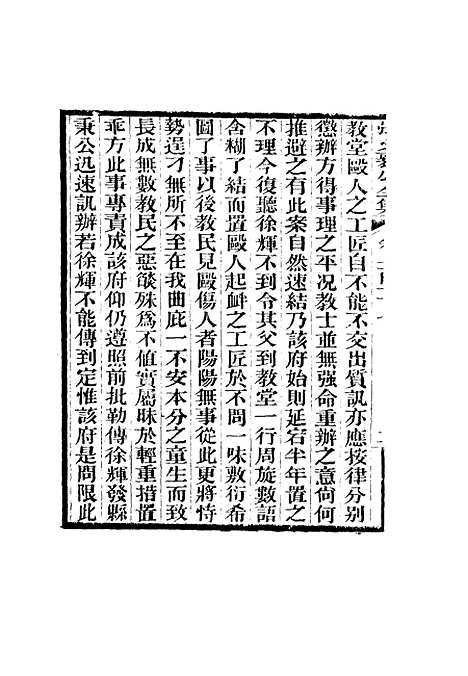 教堂毆人之工匠自不能不交出質訊亦應按律分別
懲辦方得事理之平況教士並無强命重辦之意尚何
推避之有此案自然速結乃該府始則延宕半年置之
不理今復聽徐輝不到令其父到教堂一行周旋數語
含糊了結而置毆人起衅之工匠於不問一味敷衍希
圖了事以後教民見毆傷人者陽陽無事從此更將恃
勢逞刁無所不至在我曲庇一不安本分之童生而致
長成無數教民之惡燄殊為不值實屬昧於輕重措置
乖方此事專責成該府仰仍遵照前批勒傳徐輝發縣
秉公迅速訊辦若徐輝不能傳到定惟該府是問限此